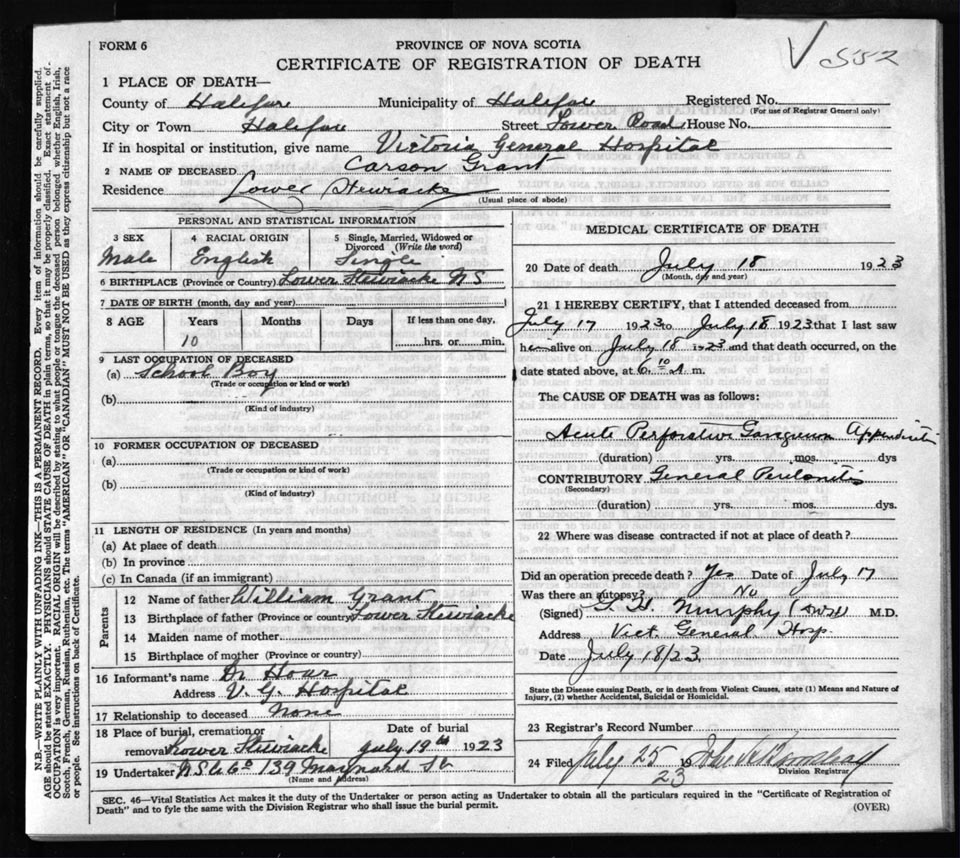 FORM 6
PROVINCE OF NOVA SCOTIA
CERTIFICATE OF REGISTRATION OF DEATH
V 552
1 PLACE OF DEATH—
County of Halifax Municipality of Halifax Registered No.
(For use of Registrar General only)
City or Town Halifax Street Tower Road House No.
If in hospital or institution, give name Victoria General Hospital
2 NAME OF DECEASED Carson Grant
Residence Lower Stewiacke
(Usual place of abode)
PERSONAL AND STATISTICAL INFORMATION
3 SEX 4 RACIAL ORIGIN 5 Single, Married, Widowed or Divorced (Write the word)
Male English Single
6 BIRTHPLACE (Province or Country) Lower Stewiacke N S
7 DATE OF BIRTH (month, day and year)
8 AGE Years Months Days If less than one day,
10 hrs. or min.
9 LAST OCCUPATION OF DECEASED
(a) School Boy
(Trade or occupation or kind or work)
(b)
(Kind of industry)
10 FORMER OCCUPATION OF DECEASED
(a)
(Trade or occupation or kind of work)
(b)
(Kind of industry)
11 LENGTH OF RESIDENCE (In years and months)
(a) At place of death
(b) In province
(c) In Canada (if an immigrant)
Parents
12 Name of father William Grant
13 Birthplace of father (Province or country) Lower Stewiacke
14 Maiden name of mother
15 Birthplace of mother (Province or country)
16 Informant's name Dr Hoar
Address V. G. Hospital
17 Relationship to deceased None
18 Place of burial, cremation or removal Lower Stewiacke
Date of burial July 19th 1923
19 Undertaker N S U Co 139 Maynard St
(Name and address)
MEDICAL CERTIFICATE OF DEATH
20 Date of death July 18 1923
(Month, day and year)
21 I HEREBY CERTIFY, that I attended deceased from
July 17 1923 to July 18 1923 that I last saw
him alive on July 18 1923 and that death occurred, on the
date stated above, at 6 10 A m.
The CAUSE OF DEATH was as follows:
Acute Perforative Appendicitis
(duration) yrs. mos. dys
CONTRIBUTORY General Peritonitis
(Secondary)
(duration) yrs. mos. dys.
22 Where was disease contracted if not at place of death?
Did an operation precede death? Yes Date of July 17
Was there an autopsy? No
(Signed) Murphy M.D.
Address Vict. General Hosp.
Date July 18/23
State the Disease causing Death, or in death from Violent Causes, state (1) Means and Nature of
Injury, (2) whether Accidental, Suicidal or Homicidal.
23 Registrar's Record Number
24 Filed July 25 19 23
Division Registrar
SEC. 46—Vital Statistics Act makes it the duty of the Undertaker or person acting as Undertaker to obtain all the particulars required in the "Certificate of Registration of
Death" and to fyle the same with the Division Registrar who shall issue the burial permit. (OVER)
N.B.—WRITE PLAINLY WITH UNFADING INK—THIS IS A PERMANENT RECORD. Every item of information should be carefully supplied.
AGE should be stated EXACTLY. PHYSICIANS should STATE CAUSE OF DEATH in plain terms, so that it may be properly classified. Exact statement of
OCCUPATION is very important. RACIAL ORIGIN will be described by stating to what people or tongue the deceased person belonged, whether English, Irish,
Scotch, French, German, Russian, Ruthenian, etc. The terms "AMERICAN OR "CANADIAN" MUST NOT BE USED as they express citizenship but not a race
or people. See instructions on back of Certificate.